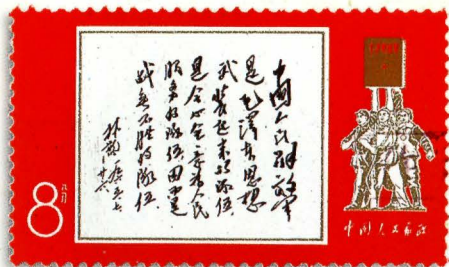 中国人民解放军
是毛泽东思想
武装起来的队伍,
是全心全意为人民
服务的队伍,因而是
战无不胜的队伍。
林彪
廿六
8
中国人民邮政